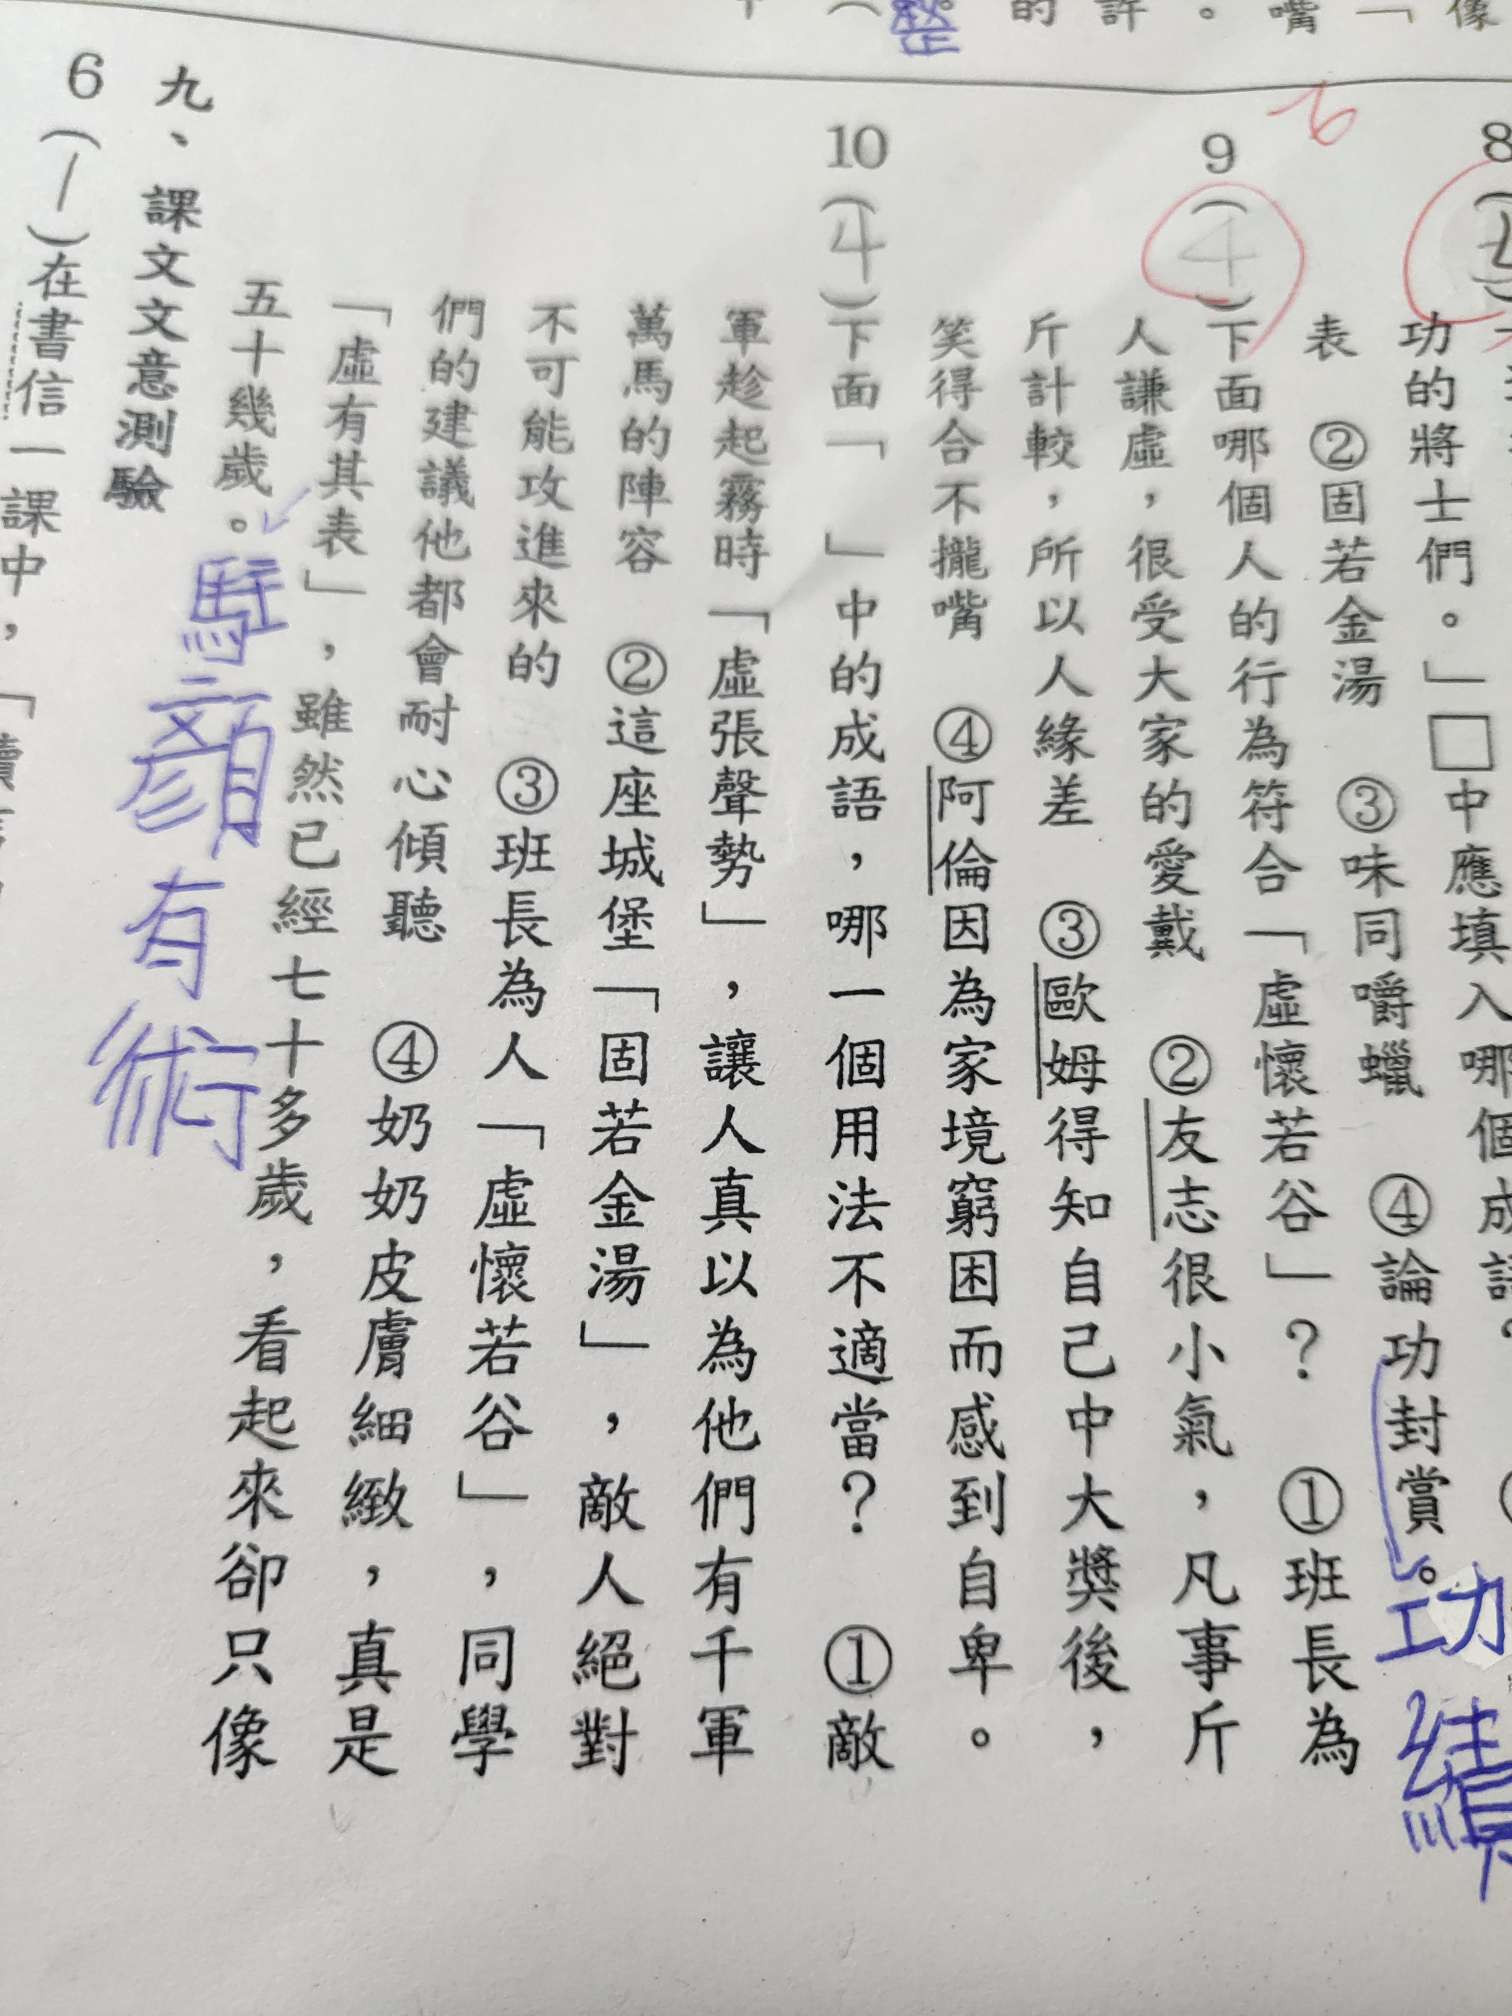 像
「
嘴
。
許
的
。
整
8
功的將士們。」□中應填入哪個成語？
表　②固若金湯　③味同嚼蠟　④論功封賞。
功績
6
9(4)下面哪個人的行為符合「虛懷若谷」？　①班長為
人謙虛，很受大家的愛戴　②友志很小氣，凡事斤
斤計較，所以人緣差　③歐姆得知自己中大獎後，
笑得合不攏嘴　④阿倫因為家境窮困而感到自卑。
10(4)下面「　」中的成語，哪一個用法不適當？　①敵
軍趁起霧時「虛張聲勢」，讓人真以為他們有千軍
萬馬的陣容　②這座城堡「固若金湯」，敵人絕對
不可能攻進來的　③班長為人「虛懷若谷」，同學
們的建議他都會耐心傾聽　④奶奶皮膚細緻，真是
「虛有其表」，雖然已經七十多歲，看起來卻只像
五十幾歲。
駐顏有術
九、課文文意測驗
6(1)在書信一課中，「